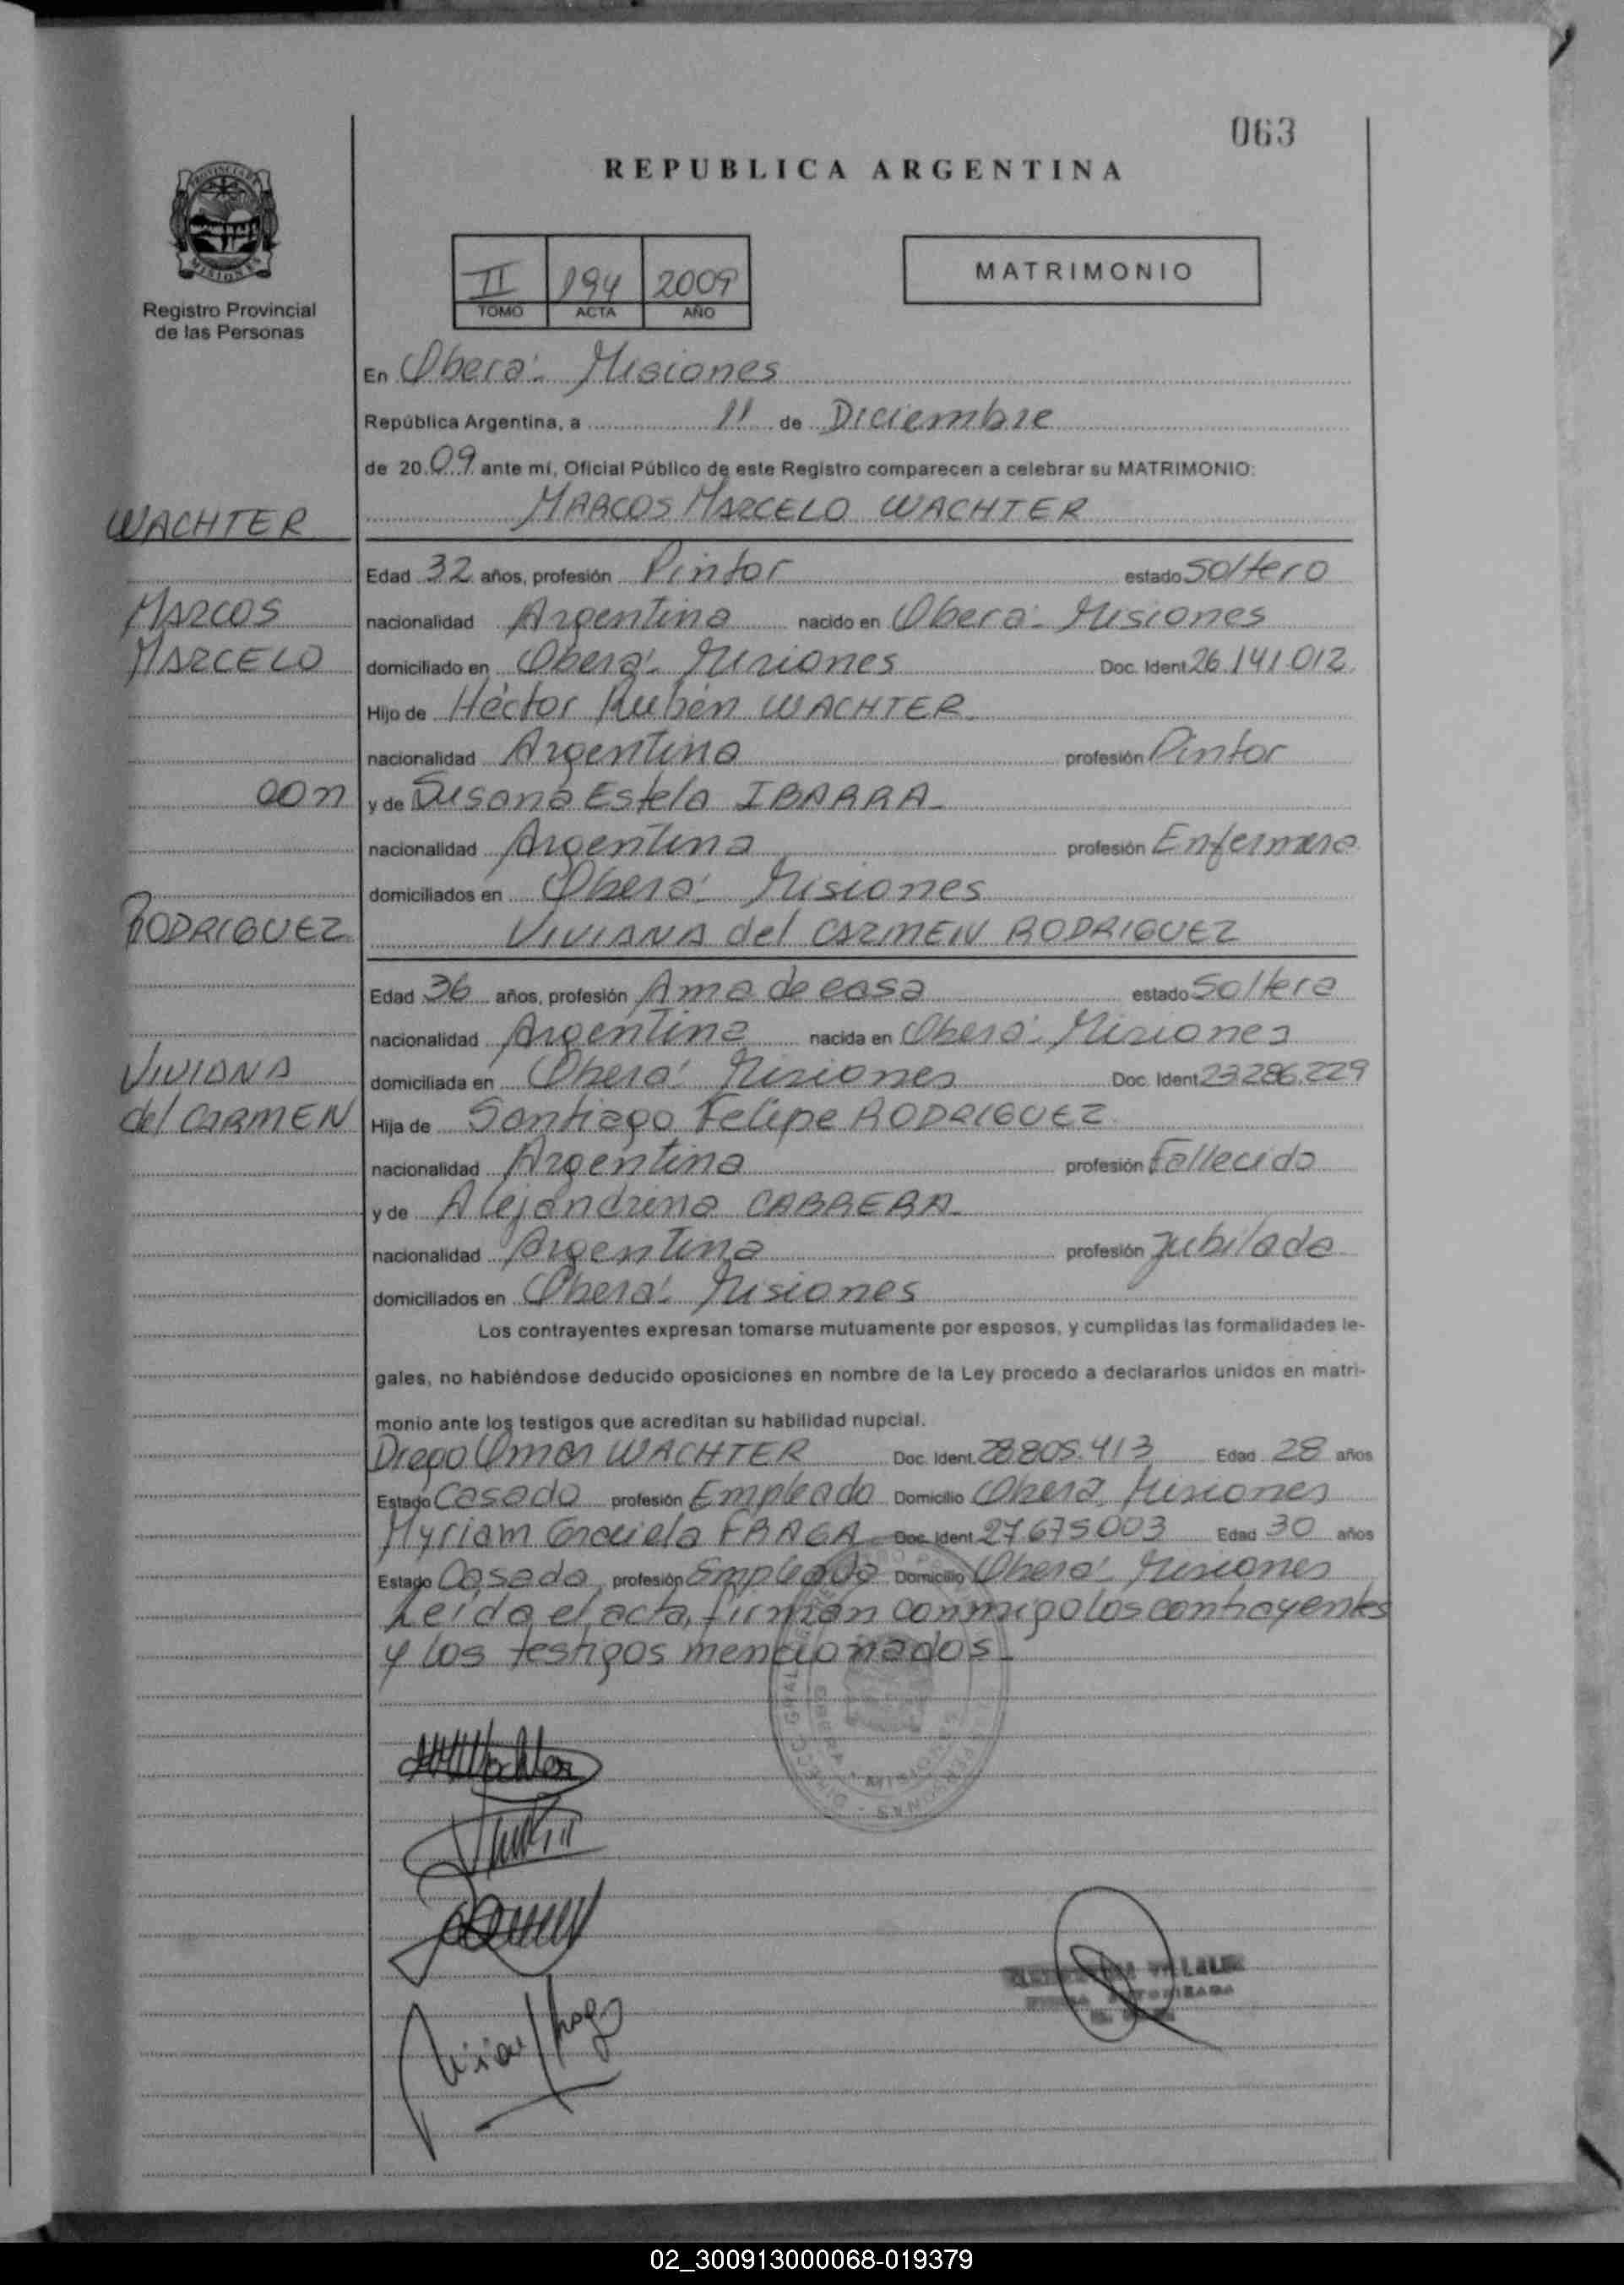 063
REPUBLICA ARGENTINA
PROVINCIA DE
MISIONES
Registro Provincial
de las Personas
II 194 2009
TOMO ACTA AÑO
MATRIMONIO
En Oberá - Misiones
República Argentina, a 11 de Diciembre
de 2009 ante mí, Oficial Público de este Registro comparecen a celebrar su MATRIMONIO:
WACHTER
MARCOS MARCELO WACHTER
Edad 32 años, profesión Pintor estado Soltero
MARCOS
nacionalidad Argentina nacido en Oberá - Misiones
MARCELO
domiciliado en Oberá - Misiones Doc. Ident 26.141.012
Hijo de Héctor Rubén WACHTER
nacionalidad Argentina profesión Pintor
con
y de Susana Estela IBARRA-
nacionalidad Argentina profesión Enfermera
domiciliados en Oberá - Misiones
RODRIGUEZ
VIVIANA del CARMEN RODRIGUEZ
Edad 36 años, profesión Ama de casa estado Soltera
nacionalidad Argentina nacida en Oberá - Misiones
VIVIANA
domiciliada en Oberá - Misiones Doc. Ident 23.286.229
del CARMEN
Hija de Santiago Felipe RODRIGUEZ
nacionalidad Argentina profesión Fallecido
y de Alejandrina CABRERA-
nacionalidad Argentina profesión Jubilada
domiciliados en Oberá - Misiones
Los contrayentes expresan tomarse mutuamente por esposos, y cumplidas las formalidades le-
gales, no habiéndose deducido oposiciones en nombre de la Ley procedo a declararlos unidos en matri-
monio ante los testigos que acreditan su habilidad nupcial.
Diego Omar WACHTER Doc. Ident. 28.805.413 Edad 28 años
Estado Casado profesión Empleado Domicilio Oberá, Misiones
Myriam Graciela FRAGA Doc. Ident. 27.675.003 Edad 30 años
Estado Casada, profesión Empleada Domicilio Oberá - Misiones
Leída el acta, firman conmigo los contrayentes
y los testigos mencionados-
02_300913000068-019379